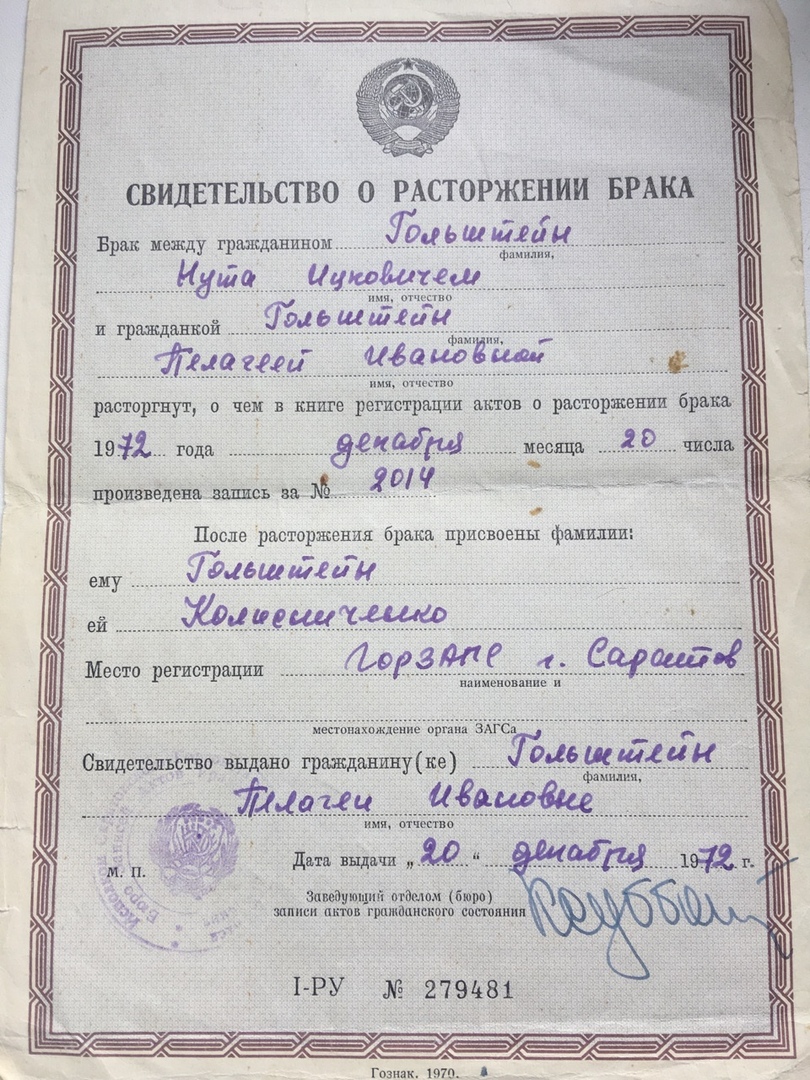 СВИДЕТЕЛЬСТВО О РАСТОРЖЕНИИ БРАКА
Брак между гражданином Гольштейн
фамилия,
Нута Ицковичем
имя, отчество
и гражданкой Гольштейн
фамилия,
Пелагеей Ивановной
имя, отчество
расторгнут, о чем в книге регистрации актов о расторжении брака
1972 года декабря месяца 20 числа
произведена запись за № 2014
После расторжения брака присвоены фамилии:
ему Гольштейн
ей Колисниченко
Место регистрации ГорЗАГС г. Саратов
наименование и
местонахождение органа ЗАГСа
Свидетельство выдано гражданину(ке) Гольштейн
фамилия,
Пелагеи Ивановне
имя, отчество
Дата выдачи „20“ декабря 1972 г.
М. П.
Заведующий отделом (бюро)
записи актов гражданского состояния
I-РУ № 279481
Гознак. 1970.